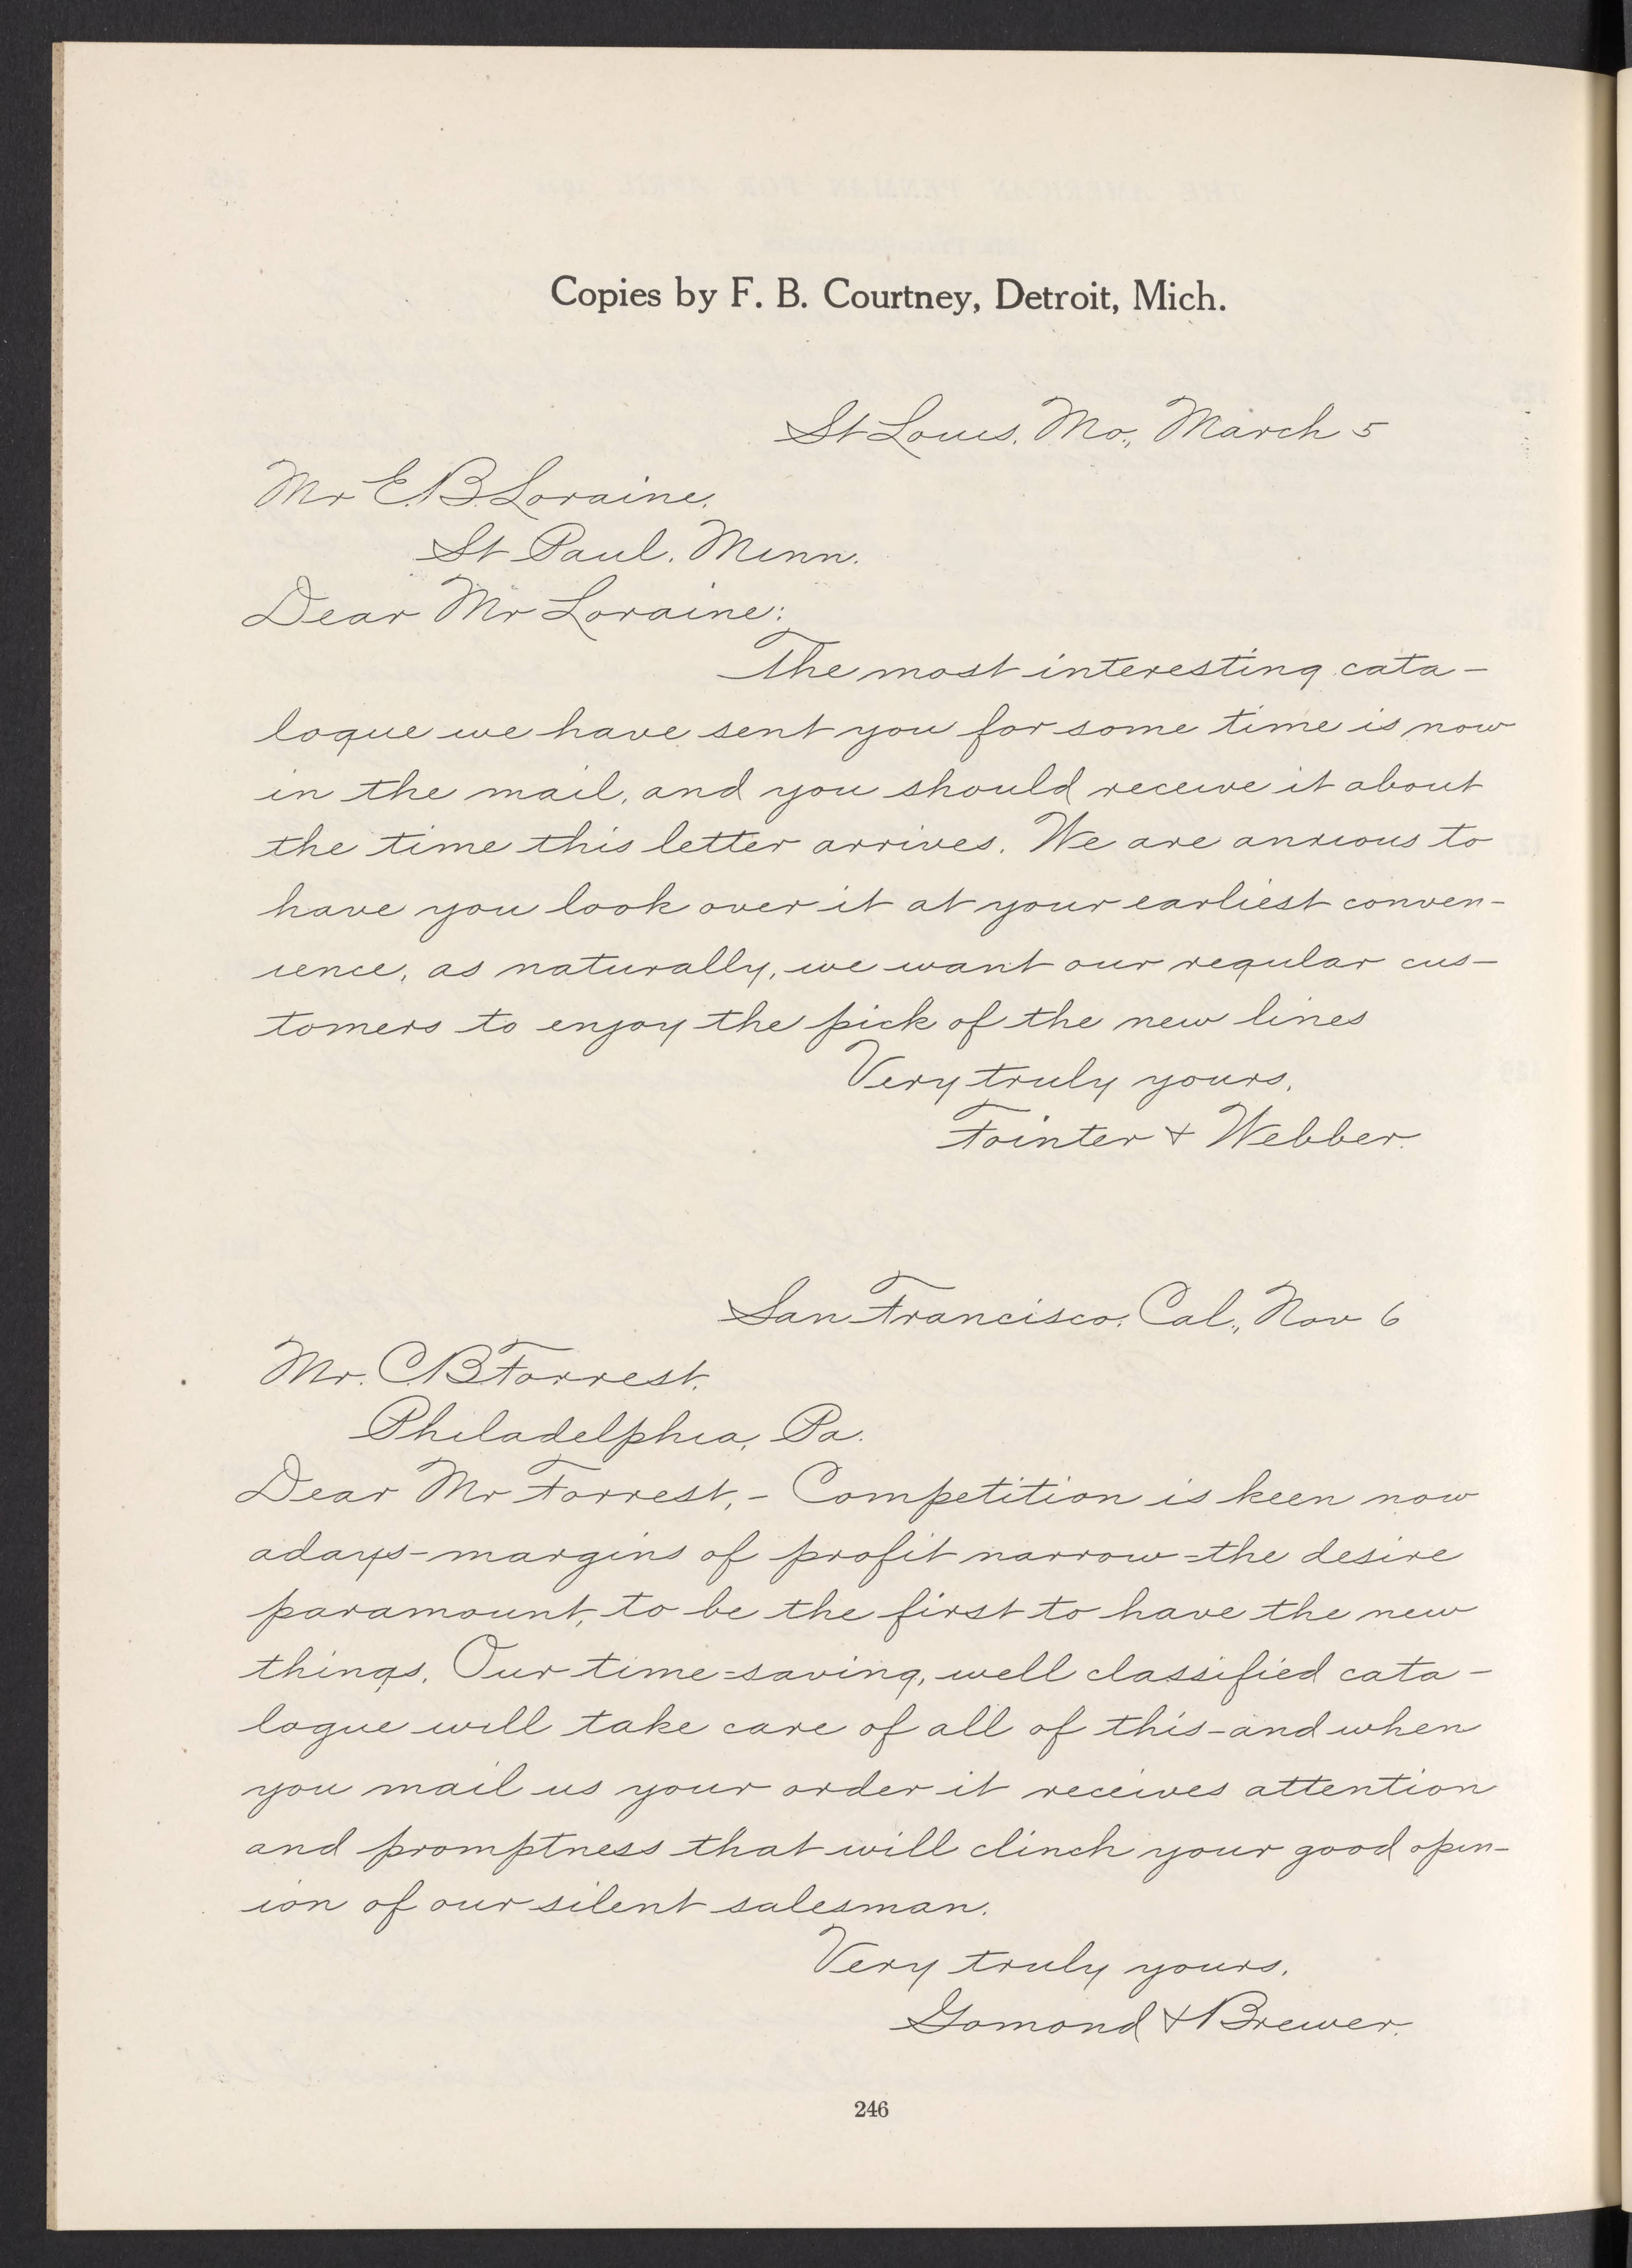 Copies by F. B. Courtney, Detroit, Mich.
St Louis, Mo., March 5
Mr E.B. Loraine,
St Paul, Minn.
Dear Mr Loraine:
The most interesting cata-
logue we have sent you for some time is now
in the mail, and you should receive it about
the time this letter arrives. We are anxious to
have you look over it at your earliest conven-
ience, as naturally, we want our regular cus-
tomers to enjoy the pick of the new lines
Very truly yours,
Fointer & Webber.
San Francisco, Cal., Nov 6
Mr. C.B. Forrest,
Philadelphia, Pa.
Dear Mr Forrest,- Competition is keen now
adays-margins of profit narrow=the desire
paramount, to be the first to have the new
things. Our time=saving, well classified cata-
logue will take care of all of this-and when
you mail us your order it receives attention
and promptness that will clinch your good opin-
ion of our silent salesman.
Very truly yours,
Gomond & Brewer.
246